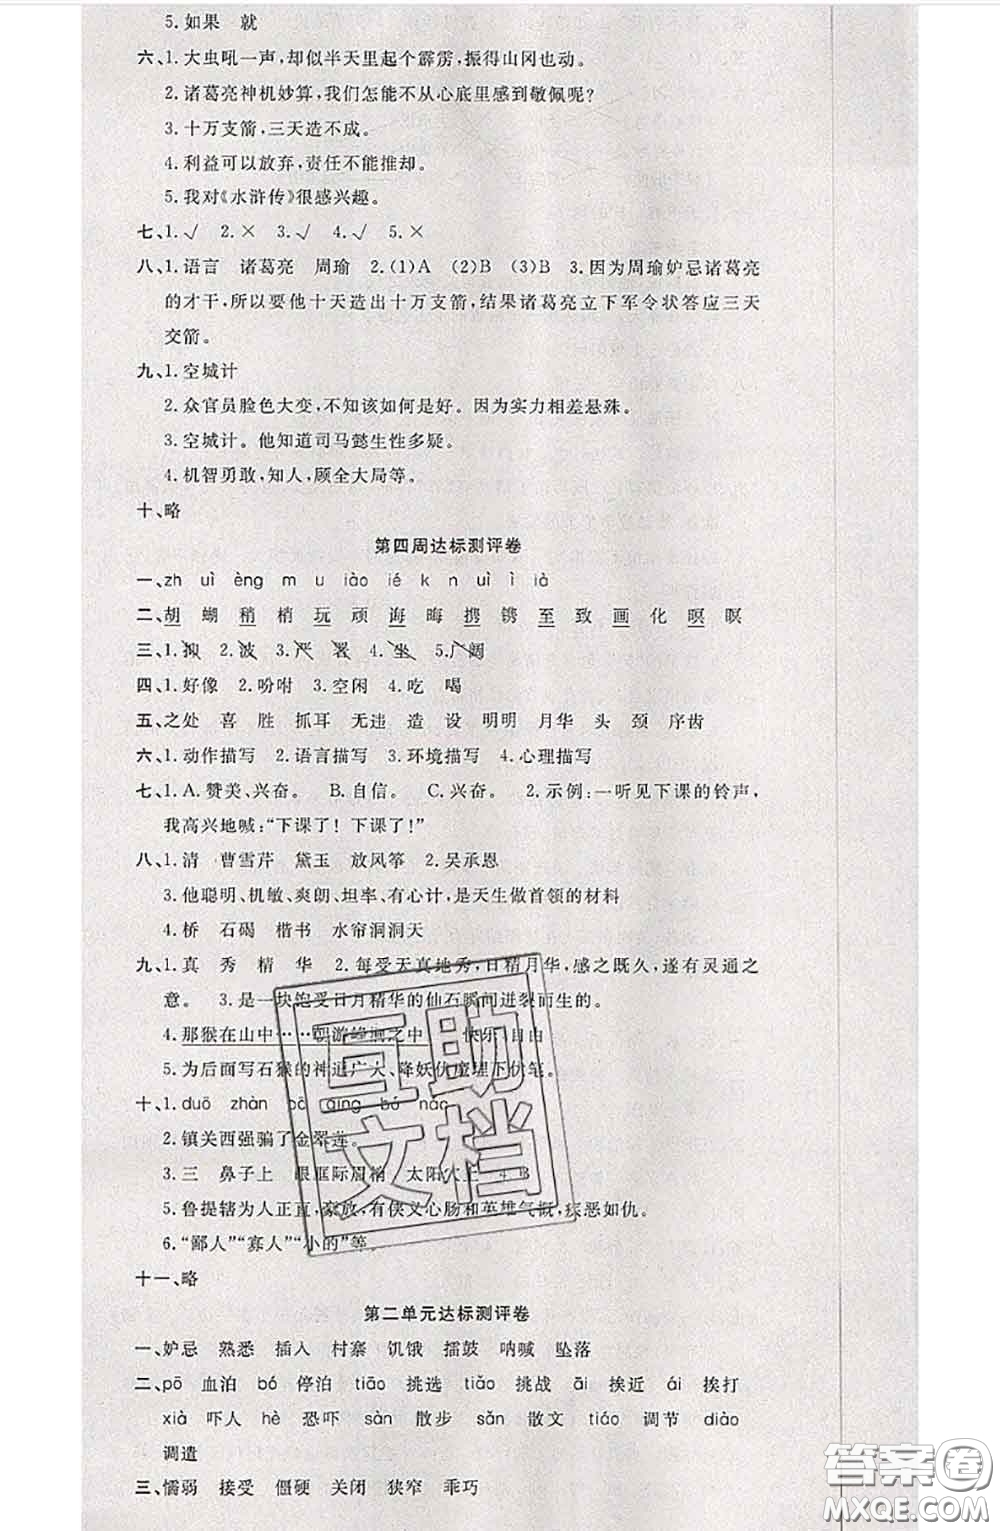 5.如果　就
六、1.大虫吼一声，却似半天里起个霹雳，振得山冈也动。
2.诸葛亮神机妙算，我们怎能不从心底里感到敬佩呢？
3.十万支箭，三天造不成。
4.利益可以放弃，责任不能推却。
5.我对《水浒传》很感兴趣。
七、1.√　2.×　3.√　4.√　5.×
八、1.语言　诸葛亮　周瑜　2.(1)A　(2)B　(3)B　3.因为周瑜妒忌诸葛亮
的才干，所以要他十天造出十万支箭，结果诸葛亮立下军令状答应三天
交箭。
九、1.空城计
2.众官员脸色大变，不知该如何是好。因为实力相差悬殊。
3.空城计。他知道司马懿生性多疑。
4.机智勇敢，知人，顾全大局等。
十、略
第四周达标测评卷
一、zh　uì　èng　m　u　iào　ié　k　n　uì　ì　ià
二、胡　蝴　稍　梢　玩　顽　海　晦　携　镌　至　致　画　化　暝　瞑
三、1.拟　2.波　3.严　署　4.坐　5.广阔
四、1.好像　2.吩咐　3.空闲　4.吃　喝
五、之处　喜　胜　抓耳　无违　造　设　明明　月华　头　颈　序齿
六、1.动作描写　2.语言描写　3.环境描写　4.心理描写
七、1.A.赞美、兴奋。　B.自信。　C.兴奋。　2.示例：一听见下课的铃声，
我高兴地喊：“下课了！下课了！”
八、1.清　曹雪芹　黛玉　放风筝　2.吴承恩
3.他聪明、机敏、爽朗、坦率、有心计，是天生做首领的材料
4.桥　石碣　楷书　水帘洞洞天
九、1.真　秀　精　华　2.每受天真地秀，日精月华，感之既久，遂有灵通之
意。　3.是一块饱受日月精华的仙石瞬间迸裂而生的。
4.那猴在山中……朝游峰洞之中　快乐　自由
5.为后面写石猴的神通广大、降妖伏魔埋下伏笔。
十、1.duō　zhàn　bō　qīng　bó　nǎo
2.镇关西强骗了金翠莲。
3.三　鼻子上　眼眶际眉梢　太阳穴上　4.B
5.鲁提辖为人正直，豪放，有侠义心肠和英雄气概，疾恶如仇。
6.“鄙人”“寡人”“小的”等。
十一、略
第二单元达标测评卷
一、妒忌　熟悉　插入　村寨　饥饿　擂鼓　呐喊　坠落
二、pō　血泊　bó　停泊　tiāo　挑选　tiǎo　挑战　āi　挨近　ái　挨打
xià　吓人　hè　恐吓　sàn　散步　sǎn　散文　tiáo　调节　diào
调遣
三、懦弱　接受　僵硬　关闭　狭窄　乖巧
互助
文档
答案圈
MXQE.COM